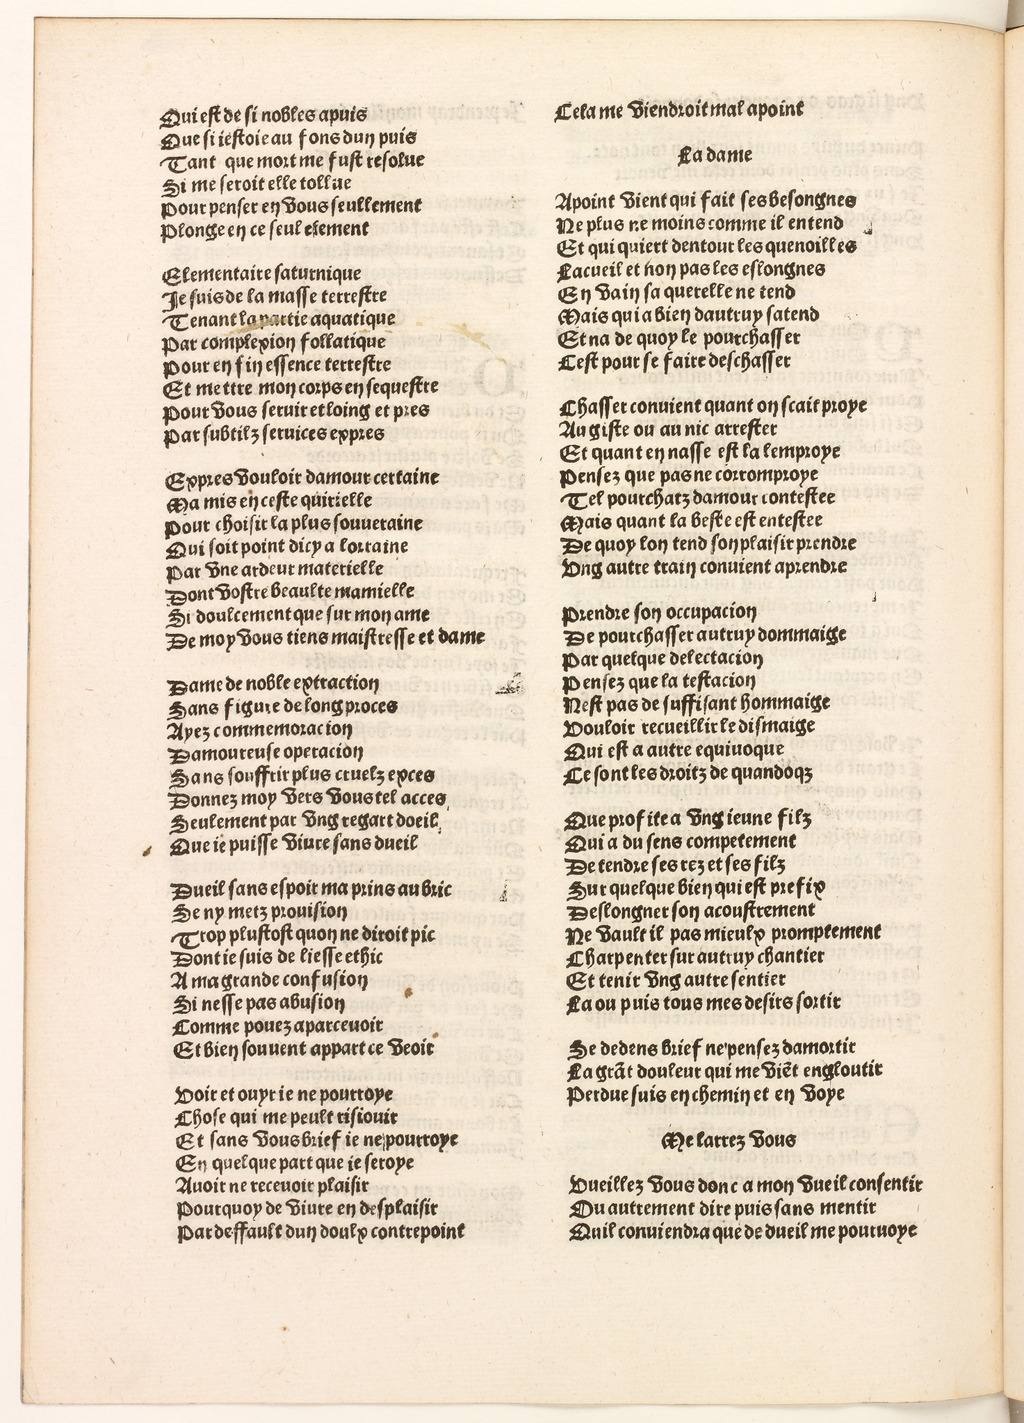 Qui est de si nobles apuis
Que si iestoie au fons dun puis
Tant que mort me fust resolue
Si me seroit elle tollue
Pour penser en vous seullement
Plonge en ce seul element
Elementaire saturnique
Je suis de la masse terrestre
Tenant la partie aquatique
Par complexion follatique
Pour en fin essence terrestre
Et mettre mon corps en sequestre
Pour vous seruir et loing et pres
Par subtilz seruices expres
Expres vouloir damour certaine
Ma mis en ceste quirielle
Pour choisir la plus souueraine
Qui soit point dicy a lorraine
Par vne ardeur materielle
Dont vostre beaulte mamielle
Si doulcement que sur mon ame
De moy vous tiens maistresse et dame
Dame de noble extraction
Sans figure de long proces
Ayez commemoracion
Damoureuse operacion
Sans souffrir plus cruelz exces
Donnez moy vers vous tel acces
Seulement par vng regart doeil
Que ie puisse viure sans dueil
Dueil sans espoir ma prins au bric
Se ny metz prouision
Trop plustost quon ne diroit pic
Dont ie suis de liesse ethic
A ma grande confusion
Si nesse pas abusion
Comme pouez aparceuoir
Et bien souuent appart ce veoir
Voir et ouyr ie ne pourroye
Chose qui me peult risiouir
Et sans vous brief ie ne pourroye
En quelque part que ie seroye
Auoir ne receuoir plaisir
Pourquoy de viure en desplaisir
Par deffault dun doulx contrepoint
Cela me viendroit mal apoint
La dame
Apoint vient qui fait ses besongnes
Ne plus ne moins comme il entend
Et qui quiert dentour les quenoilles
Lacueil et non pas les eslongnes
En vain sa querelle ne tend
Mais qui a bien dautruy satend
Et na de quoy le pourchasser
Cest pour se faire deschasser
Chasser conuient quant on scait proye
Au giste ou au nic arrester
Et quant en nasse est la lemproye
Pensez que pas ne corromproye
Tel pourchatz damour contestee
Mais quant la beste est entestee
De quoy lon tend son plaisir prendre
Vng autre train conuient aprendre
Prendre son occupacion
De pourchasser autruy dommaige
Par quelque delectacion
Pensez que la testacion
Nest pas de suffisant hommaige
Vouloir recueillir le dismaige
Qui est a autre equiuoque
Ce sont les droitz de quandoqz
Que profite a vng ieune filz
Qui a du sens competement
De tendre ses rez et ses filz
Sur quelque bien qui est prefix
Deslongner son acoustrement
Ne vault il pas mieulx promptement
Charpenter sur autruy chantier
Et tenir vng autre sentier
La ou puis tous mes desirs sortir
Se dedens brief ne pensez damortir
La grãt douleur qui me viẽt engloutir
Perdue suis en chemin et en voye
Me larrez vous
Vueillez vous donc a mon vueil consentir
Ou autrement dire puis sans mentir
Quil conuiendra que de dueil me pouruoye